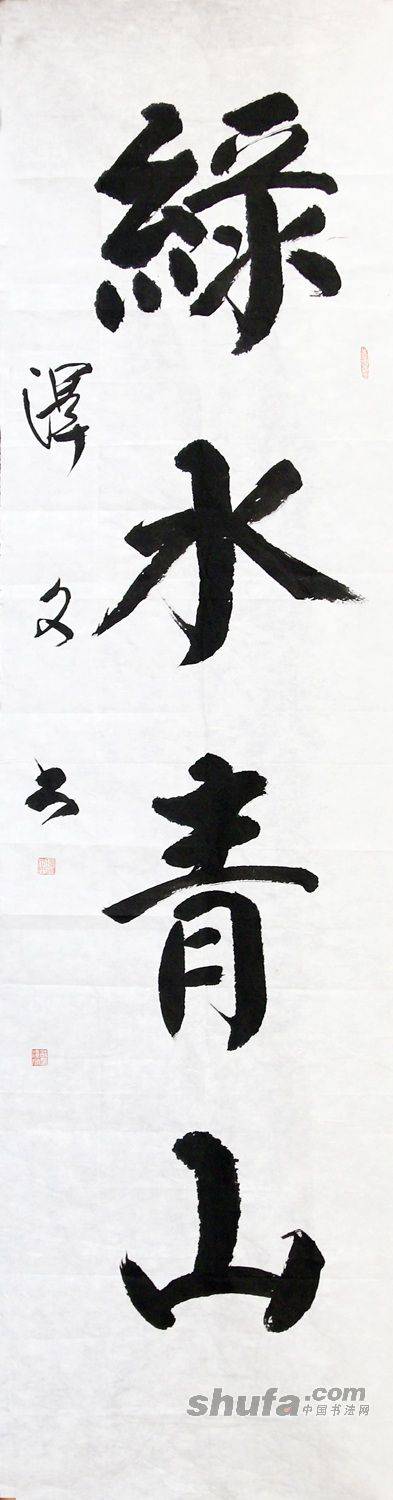 綠水青山
澤文书
shufa.com
中国书法网